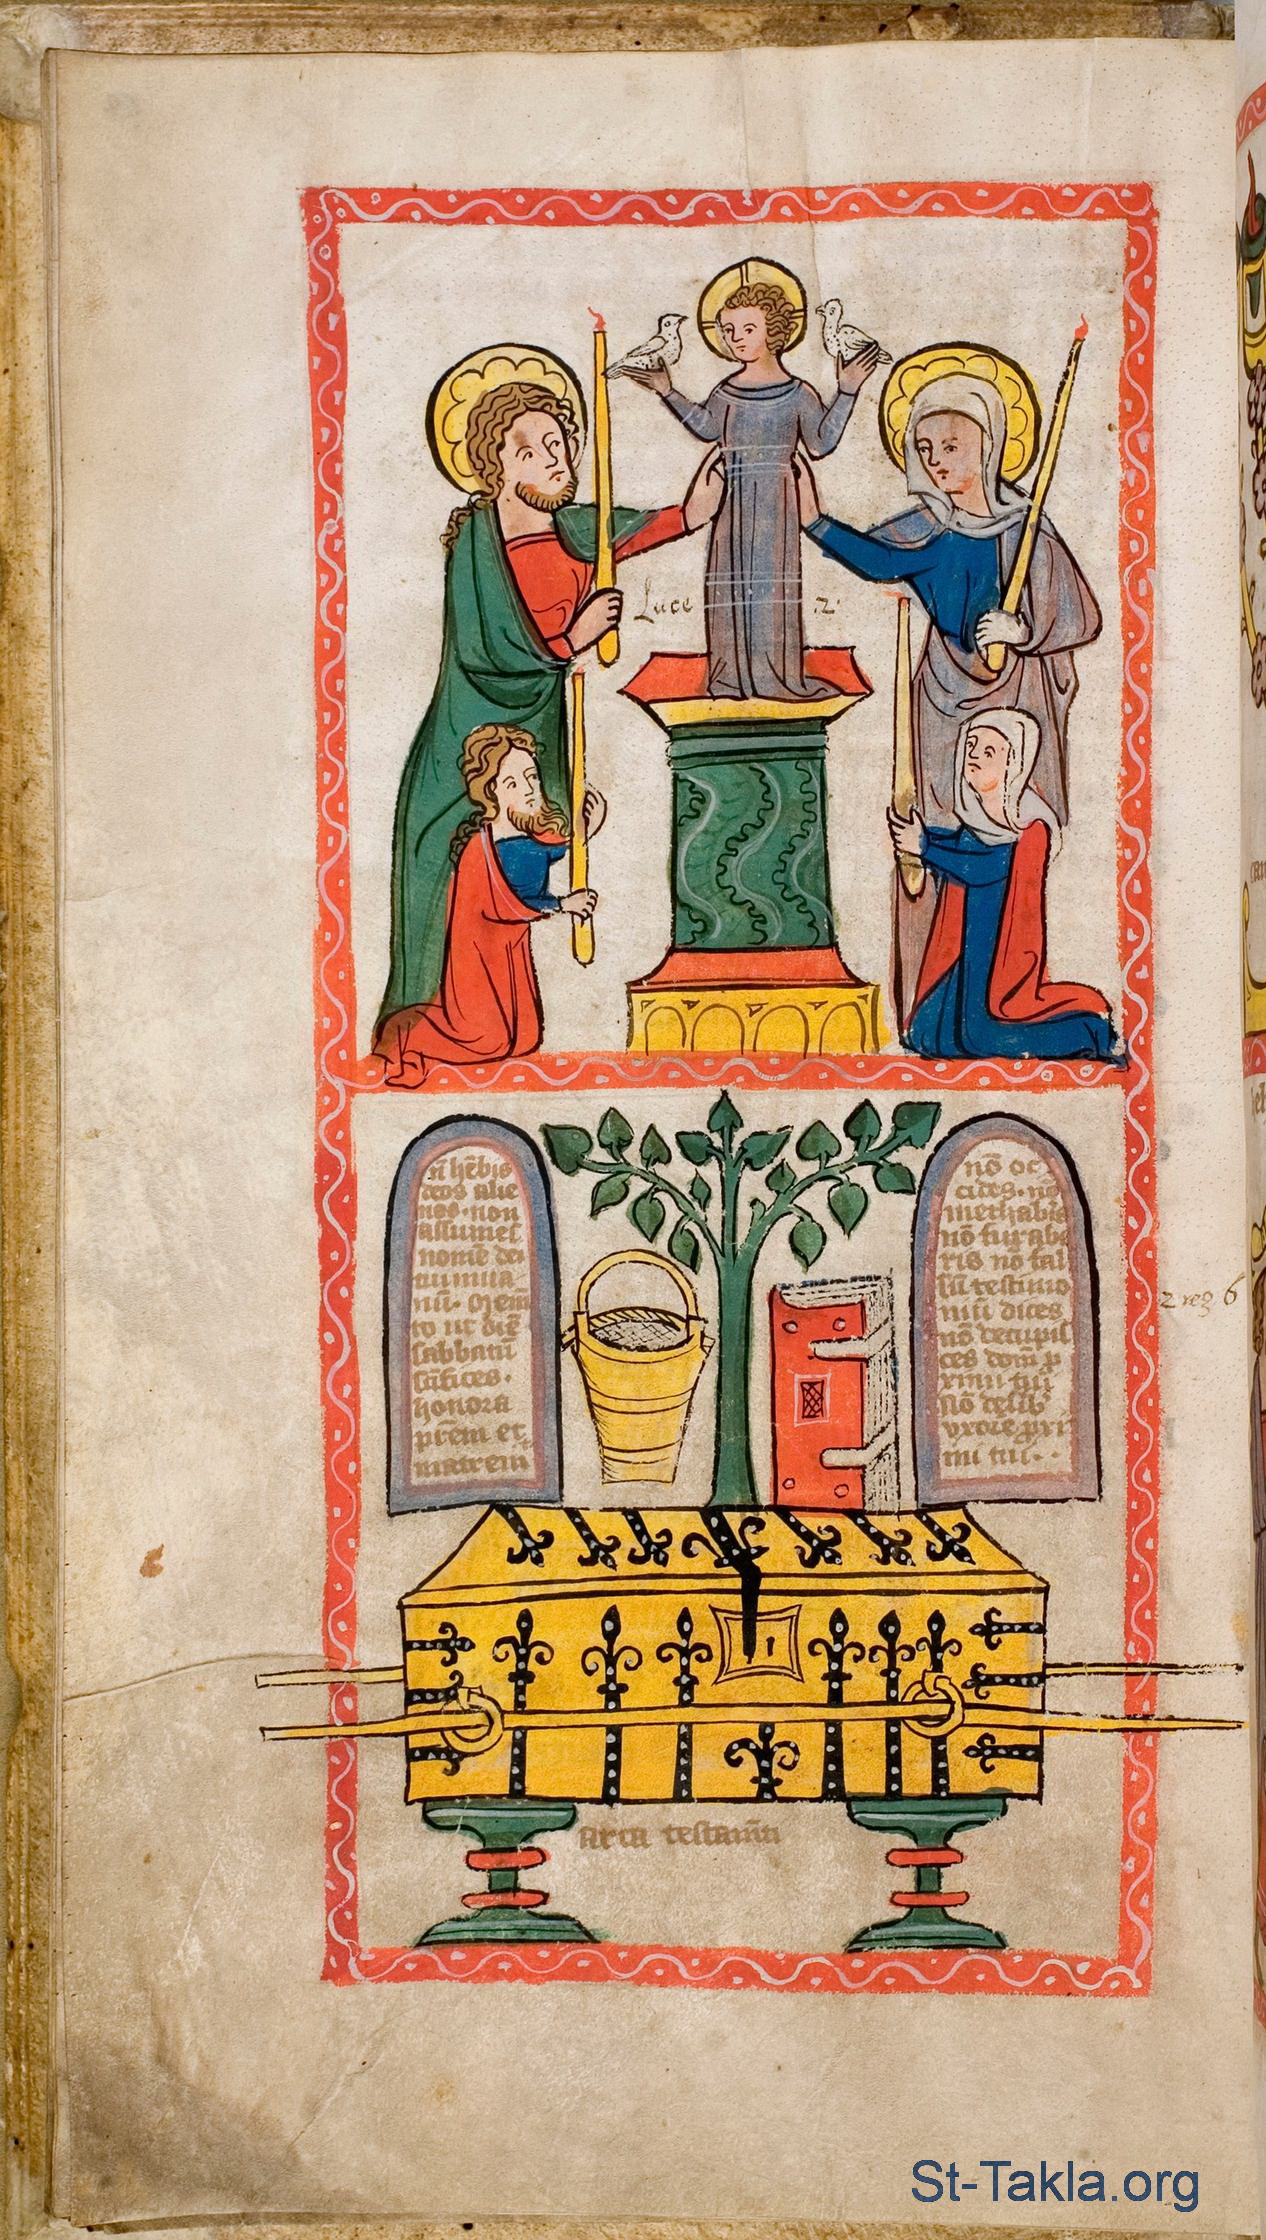 Luce 2
nō hēbis
deos alie
nos. non
assumes
nomē dei
tui in ua
nū.
to ut diē
sabbati
sc̄ifices.
honora
pr̄em et
matrem
nō oc
cides. nō
mechabis
nō furabe
ris nō fal
sū testimo
niū dices
nō
ces domū p
ximi tui
nō
uxorē pxi
mi tui.
2 reg 6
arca testam̄ti
St-Takla.org